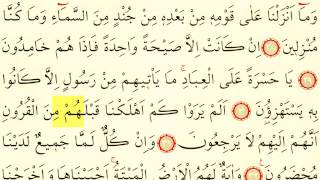 وَمَا أَنْزَلْنَا عَلَى قَوْمِهِ مِنْ بَعْدِهِ مِنْ جُنْدٍ مِنَ السَّمَاءِ وَمَا كُنَّا
مُنْزِلِينَ اِنْ كَانَتْ اِلَّا صَيْحَةً وَاحِدَةً فَاِذَا هُمْ خَامِدُونَ
يَا حَسْرَةً عَلَى الْعِبَادِ مَا يَأْتِيهِمْ مِنْ رَسُولٍ اِلَّا كَانُوا
بِهِ يَسْتَهْزِؤُنَ اَلَمْ يَرَوْا كَمْ اَهْلَكْنَا قَبْلَهُمْ مِنَ الْقُرُونِ
اَنَّهُمْ اِلَيْهِمْ لَا يَرْجِعُونَ وَاِنْ كُلٌّ لَمَّا جَمِيعٌ لَدَيْنَا
مُحْضَرُونَ وَاٰيَةٌ لَهُمُ الْاَرْضُ الْمَيْتَةُ اَحْيَيْنَاهَا وَاَخْرَجْنَا